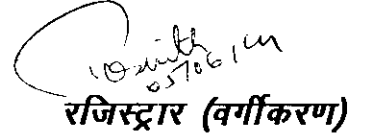 05/06/14
रजिस्ट्रार (वर्गीकरण)